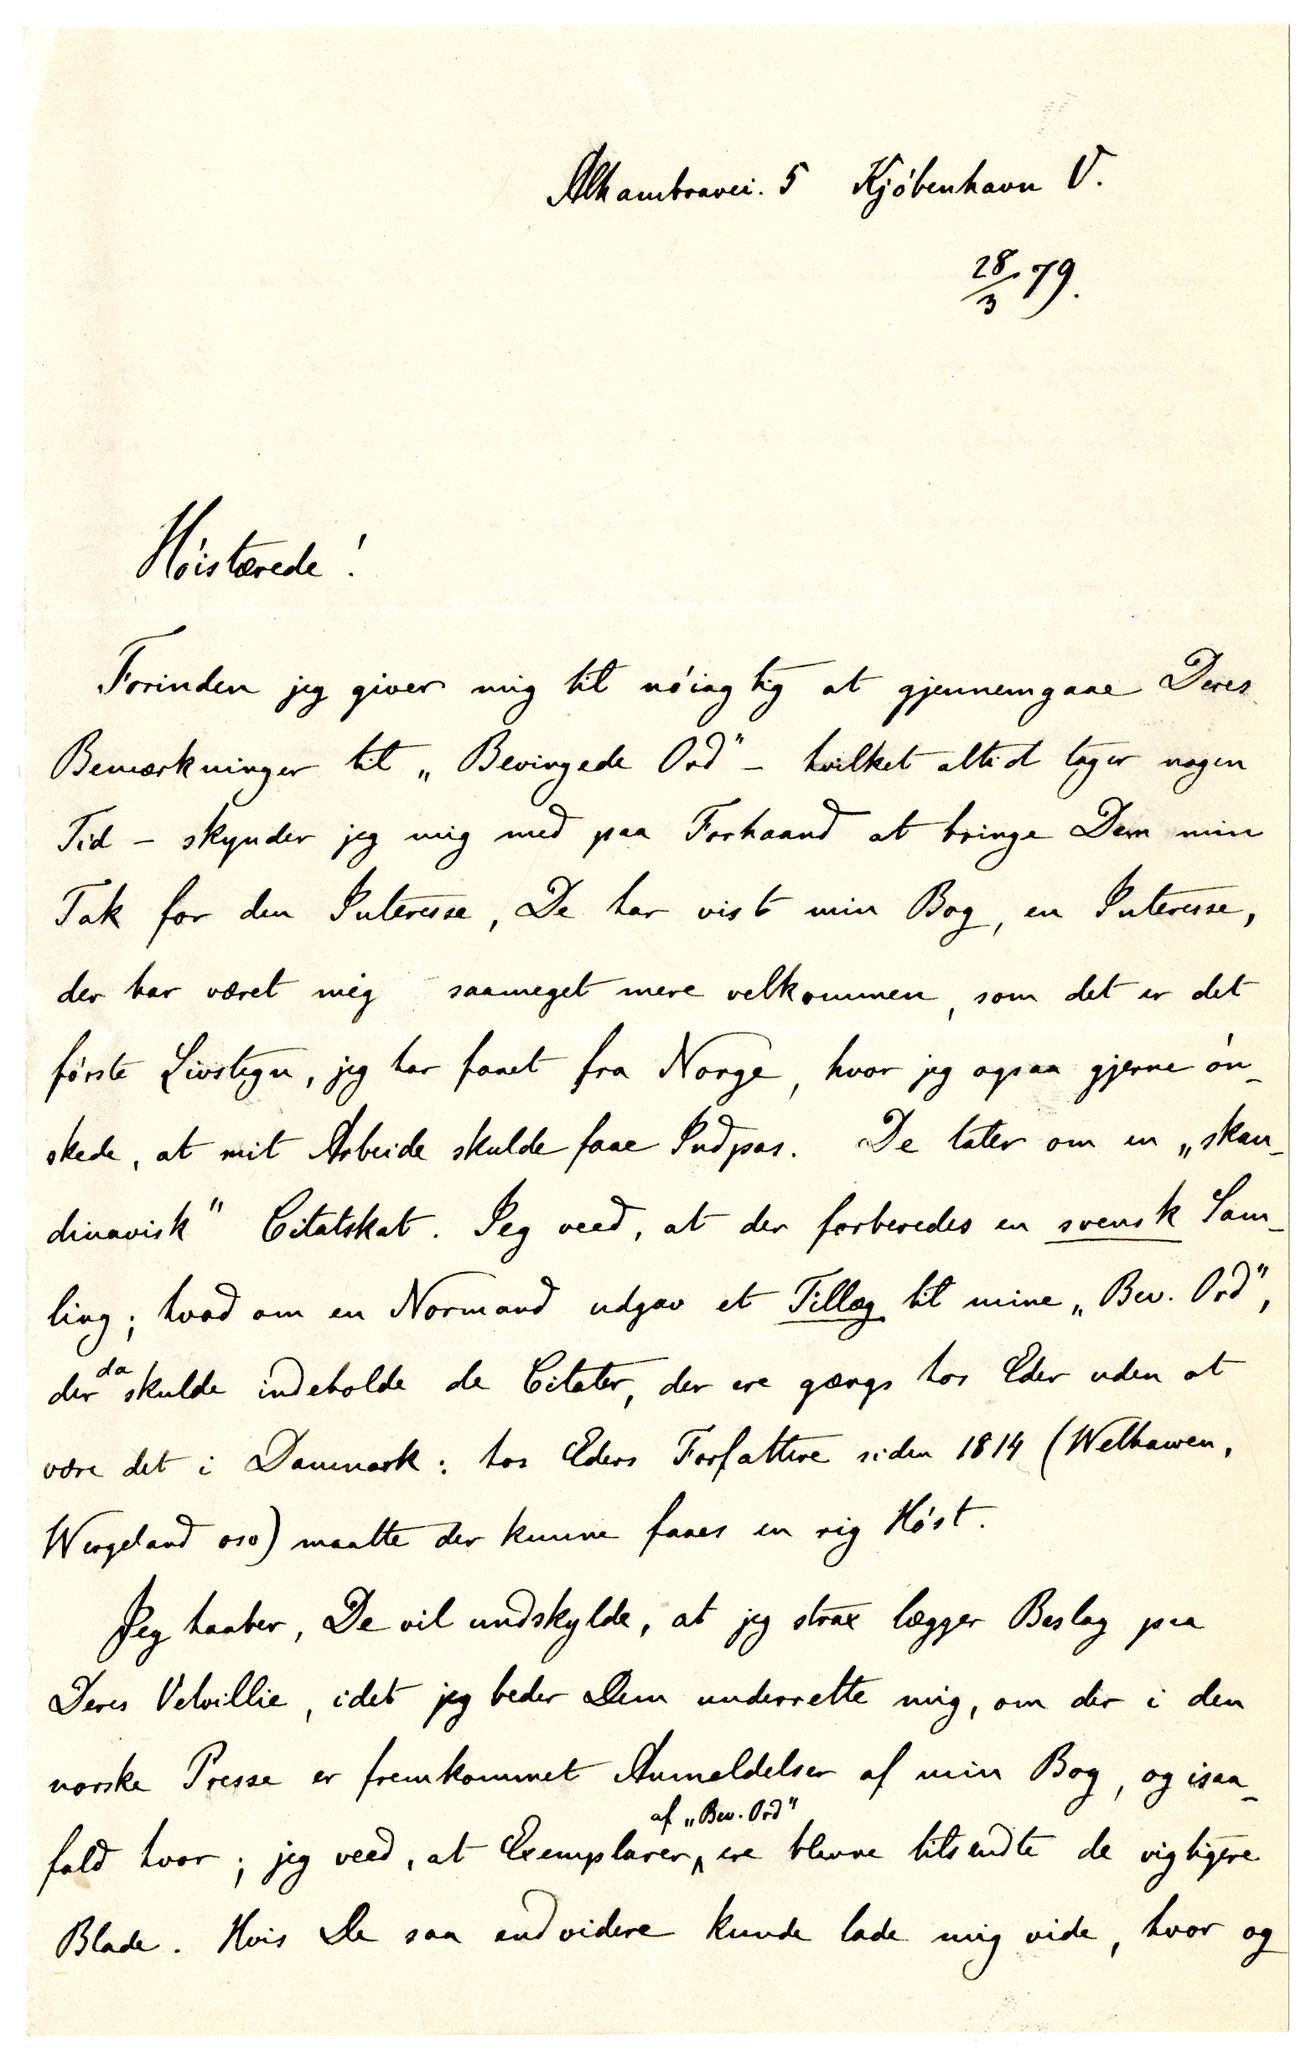 Alhambravei. 5 Kjøbenhavn V.
28/3 79.
Høistærede!
Forinden jeg giver mig til nøiagtig at gjennemgaae Deres
Bemærkninger til „Bevingede Ord" – hvilket altid tager nogen
Tid – skynder jeg mig med paa Forhaand at bringe Dem min
Tak for den Interesse, De har vist min Bog, en Interesse,
der har været mig saameget mere velkommen, som det er det
første Livstegn, jeg har faaet fra Norge, hvor jeg ogsaa gjerne øn-
skede, at mit Arbeide skulde faae Indpas. De taler om en „skan-
dinavisk" Citatskat. Jeg veed, at der forberedes en svensk Sam-
ling; hvad om en Normand udgav et Tillæg til mine „Bev. Ord",
der da skulde indeholde de Citater, der ere gængs hos Eder uden at
være det i Danmark: hos Eders Forfattere siden 1814 (Welhaven,
Wergeland oso) maatte der kunne faaes en rig Høst.
Jeg haaber, De vil undskylde, at jeg strax lægger Beslag paa
Deres Velvillie, idet jeg beder Dem underrette mig, om der i den
norske Presse er fremkommet Anmeldelser af min Bog, og isaa-
fald hvor; jeg veed, at Exemplarer af „Bev. Ord" ere blevne tilsendte de vigtigere
Blade. Hvis De saa endvidere kunde lade mig vide, hvor og